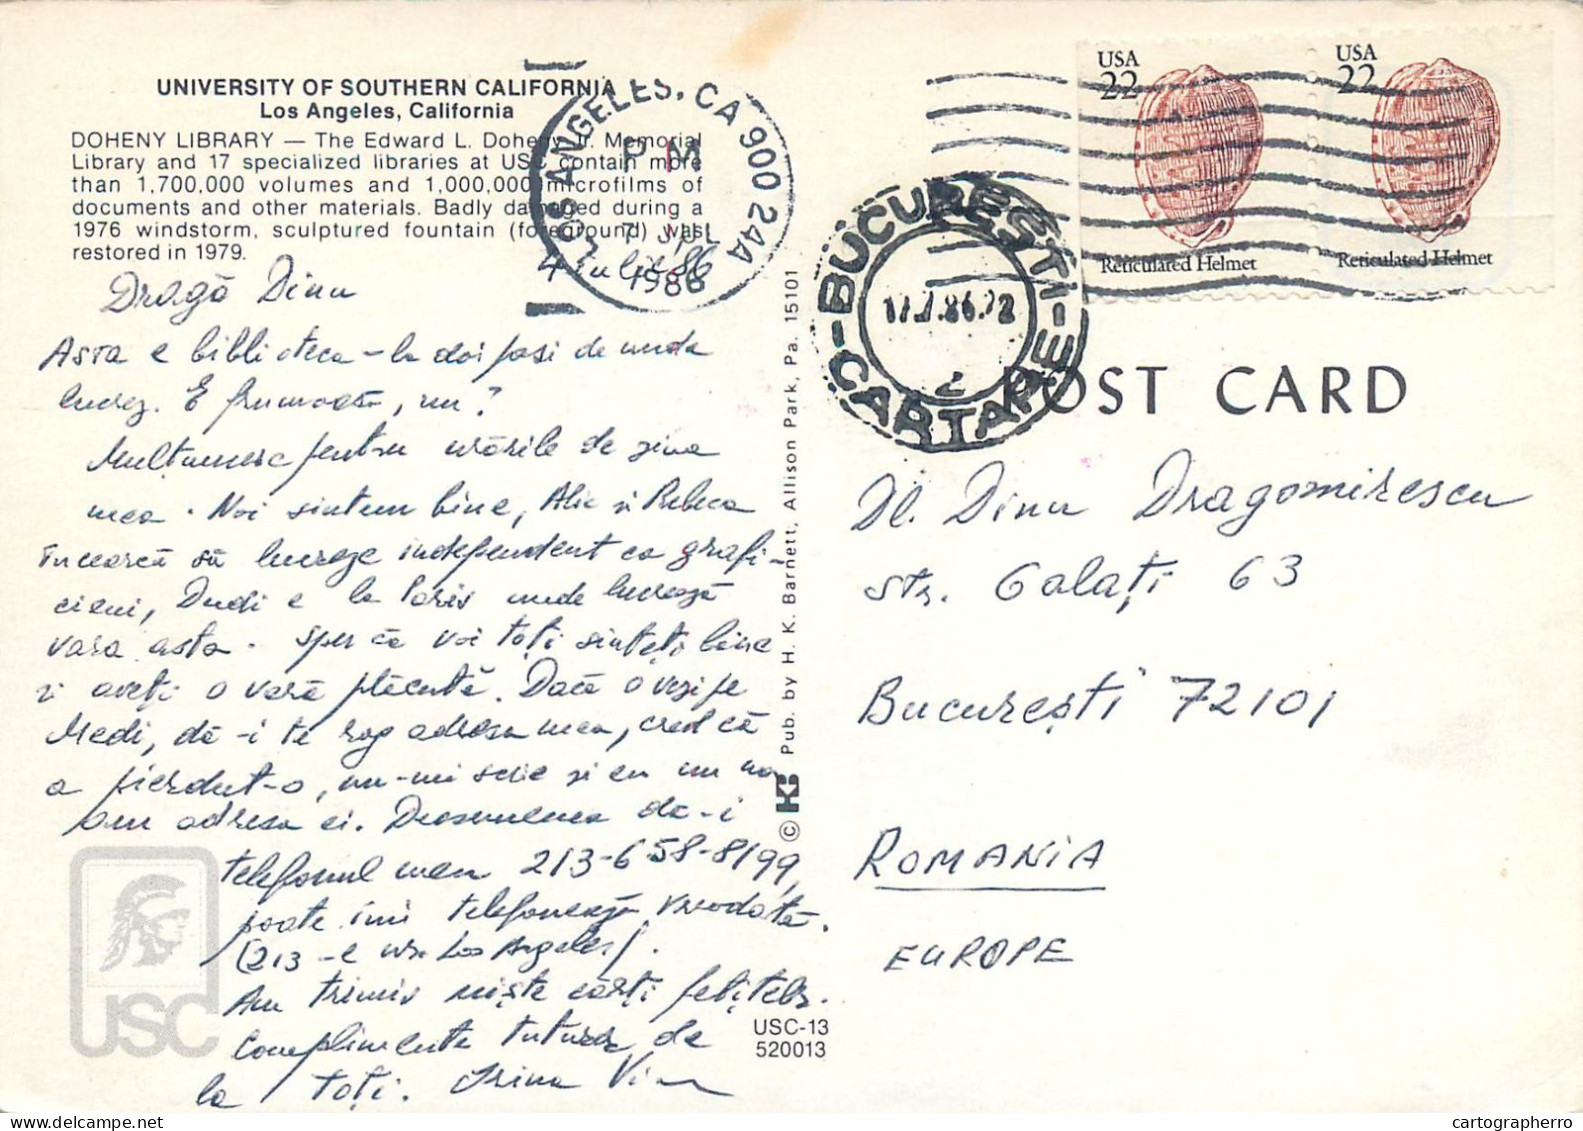 UNIVERSITY OF SOUTHERN CALIFORNIA
Los Angeles, California
DOHENY LIBRARY — The Edward L. Doheny Jr. Memorial
Library and 17 specialized libraries at USC contain more
than 1,700,000 volumes and 1,000,000 microfilms of
documents and other materials. Badly damaged during a
1976 windstorm, sculptured fountain (foreground) was
restored in 1979.
LOS ANGELES, CA 900 24A
PM
1986
4 iulie 86
Dragă Dinu
Asta e biblioteca - la doi pași de unde
lucrez. E frumoasă, nu?
Mulțumesc pentru urările de ziua
mea. Noi suntem bine, Alic și Rebeca
încearcă să lucreze independent ca grafi-
cieni, Dudi e la Paris unde lucrează
vara asta. Sper că voi toți sinteți bine
și aveți o vară plăcută. Dacă o vezi pe
Medi, dă-i te rog adresa mea, cred că
a pierdut-o, nu-mi scrie și eu nu
am adresa ei. Deasemenea dă-i
telefonul meu 213-658-8199,
poate îmi telefonează vreodată.
(213 - e Los Angeles).
Am trimis niște cărți fetițelor.
Complimente tuturor de
la toți. Irina
USC
USC-13
520013
© HKB Pub. by H. K. Barnett, Allison Park, Pa. 15101
USA
22
Reticulated Helmet
USA
22
Reticulated Helmet
BUCUREȘTI
CARTARE
POST CARD
Dl. Dinu Dragomirescu
str. Galați 63
București 72101
ROMANIA
EUROPE
cartographerro